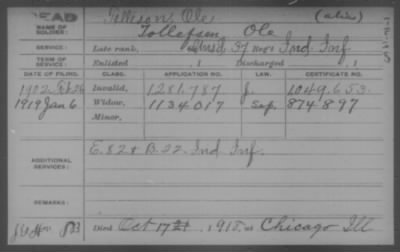 DEAD
Tilleson, Ole (alias)
NAME OF SOLDIER: Tollefsen Ole
SERVICE: Late rank, 37 Reg't Ind. Inf.
TERM OF SERVICE: Enlisted , 1 Discharged , 1
DATE OF FILING. CLASS. APPLICATION NO. LAW. CERTIFICATE NO.
1902 Feb 26 Invalid, 1281.787 J. 1049.653.
1919 Jan 6 Widow, 1134.017 Sep. 874.897
Minor,
ADDITIONAL SERVICES: E. 82 & B. 22. Ind Inf.
REMARKS:
Died Oct 17 1918, at Chicago Ill